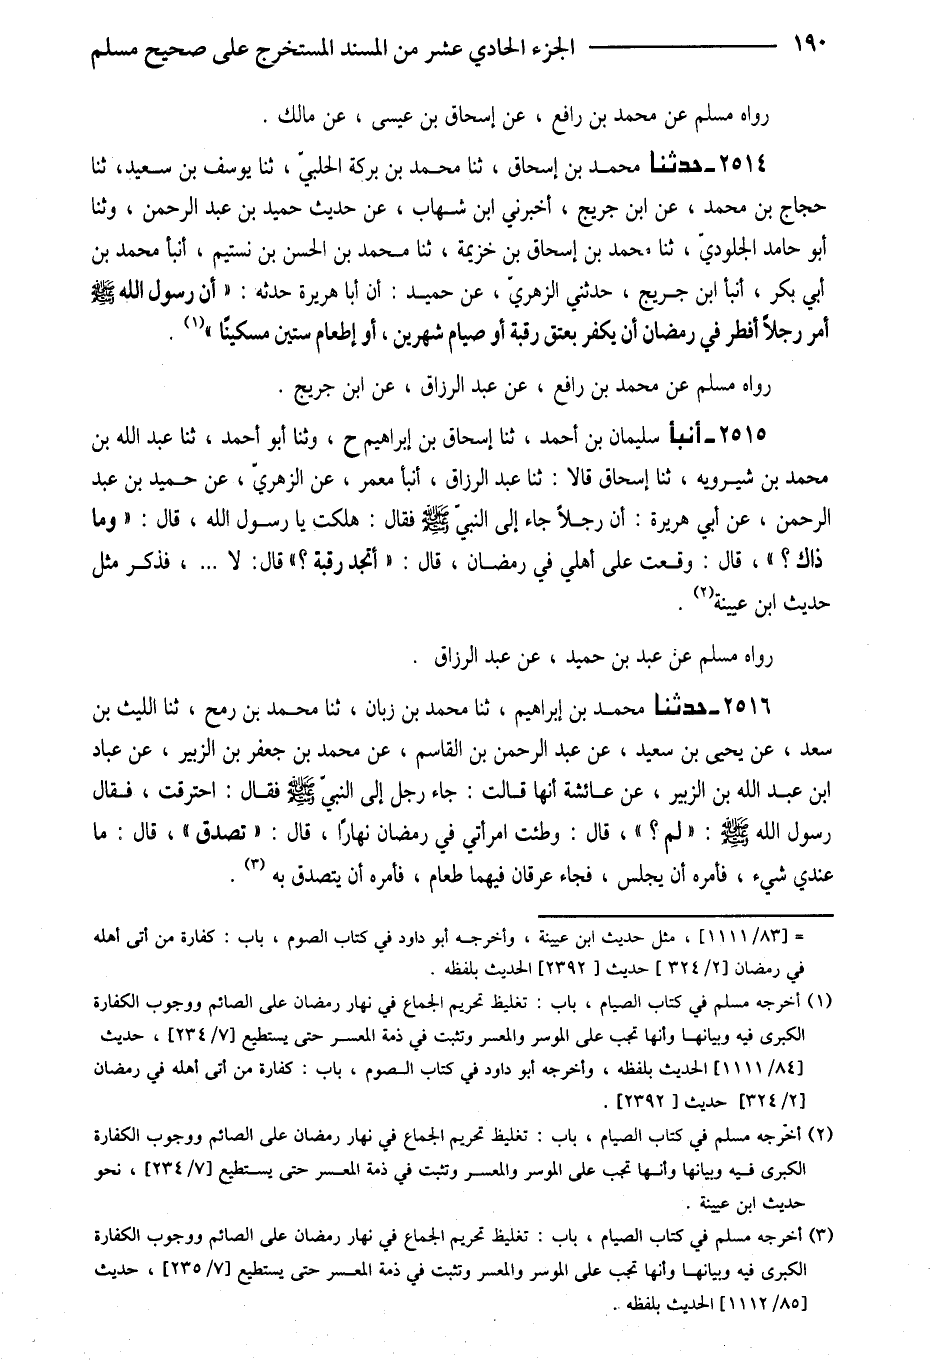 ١٩٠ ــــــــــــــــ الجزء الحادي عشر من المسند المستخرج على صحيح مسلم
رواه مسلم عن محمد بن رافع ، عن إسحاق بن عيسى ، عن مالك .
٢٥١٤ـ حدثنا محمد بن إسحاق ، ثنا محمد بن بركة الحلبيّ ، ثنا يوسف بن سعيد، ثنا
حجاج بن محمد ، عن ابن جريج ، أخبرني ابن شهاب ، عن حديث حميد بن عبد الرحمن ، وثنا
أبو حامد الجلوديّ ، ثنا محمد بن إسحاق بن خزيمة ، ثنا محمد بن الحسن بن نستيم ، أنبأ محمد بن
أبي بكر ، أنبأ ابن جريج ، حدثني الزهريّ ، عن حميد : أن أبا هريرة حدثه : « أن رسول الله ﷺ
أمر رجلاً أفطر في رمضان أن يكفر بعتق رقبة أو صيام شهرين ، أو إطعام ستين مسكينًا »(١) .
رواه مسلم عن محمد بن رافع ، عن عبد الرزاق ، عن ابن جريج .
٢٥١٥ـ أنبأ سليمان بن أحمد ، ثنا إسحاق بن إبراهيم ح ، وثنا أبو أحمد ، ثنا عبد الله بن
محمد بن شيرويه ، ثنا إسحاق قالا : ثنا عبد الرزاق ، أنبأ معمر ، عن الزهريّ ، عن حميد بن عبد
الرحمن ، عن أبي هريرة : أن رجلاً جاء إلى النبيّ ﷺ فقال : هلكت يا رسول الله ، قال : « وما
ذاك ؟ » ، قال : وقعت على أهلي في رمضان ، قال : « أتجد رقبة ؟» قال: لا ... ، فذكر مثل
حديث ابن عيينة(٢) .
رواه مسلم عن عبد بن حميد ، عن عبد الرزاق .
٢٥١٦ـ حدثنا محمد بن إبراهيم ، ثنا محمد بن زبان ، ثنا محمد بن رمح ، ثنا الليث بن
سعد ، عن يحيى بن سعيد ، عن عبد الرحمن بن القاسم ، عن محمد بن جعفر بن الزبير ، عن عباد
ابن عبد الله بن الزبير ، عن عائشة أنها قالت : جاء رجل إلى النبيّ ﷺ فقال : احترقت ، فقال
رسول الله ﷺ : « لم ؟ » ، قال : وطئت امرأتي في رمضان نهارًا ، قال : « تصدق » ، قال : ما
عندي شيء ، فأمره أن يجلس ، فجاء عرقان فيهما طعام ، فأمره أن يتصدق به (٣) .
= [١١١١/٨٣] ، مثل حديث ابن عيينة ، وأخرجه أبو داود في كتاب الصوم ، باب : كفارة من أتى أهله
في رمضان [٣٢٤/٢ ] حديث [ ٢٣٩٢] الحديث بلفظه .
(١) أخرجه مسلم في كتاب الصيام ، باب : تغليظ تحريم الجماع في نهار رمضان على الصائم ووجوب الكفارة
الكبرى فيه وبيانها وأنها تجب على الموسر والمعسر وتثبت في ذمة المعسر حتى يستطيع [٢٣٤/٧] ، حديث
[١١١١/٨٤] الحديث بلفظه ، وأخرجه أبو داود في كتاب الصوم ، باب : كفارة من أتى أهله في رمضان
[٣٢٤/٢] حديث [ ٢٣٩٢] .
(٢) أخرجه مسلم في كتاب الصيام ، باب : تغليظ تحريم الجماع في نهار رمضان على الصائم ووجوب الكفارة
الكبرى فيه وبيانها وأنها تجب على الموسر والمعسر وتثبت في ذمة المعسر حتى يستطيع [٢٣٤/٧] ، نحو
حديث ابن عيينة .
(٣) أخرجه مسلم في كتاب الصيام ، باب : تغليظ تحريم الجماع في نهار رمضان على الصائم ووجوب الكفارة
الكبرى فيه وبيانها وأنها تجب على الموسر والمعسر وتثبت في ذمة المعسر حتى يستطيع [٢٣٥/٧] ، حديث
[١١١٢/٨٥] الحديث بلفظه .